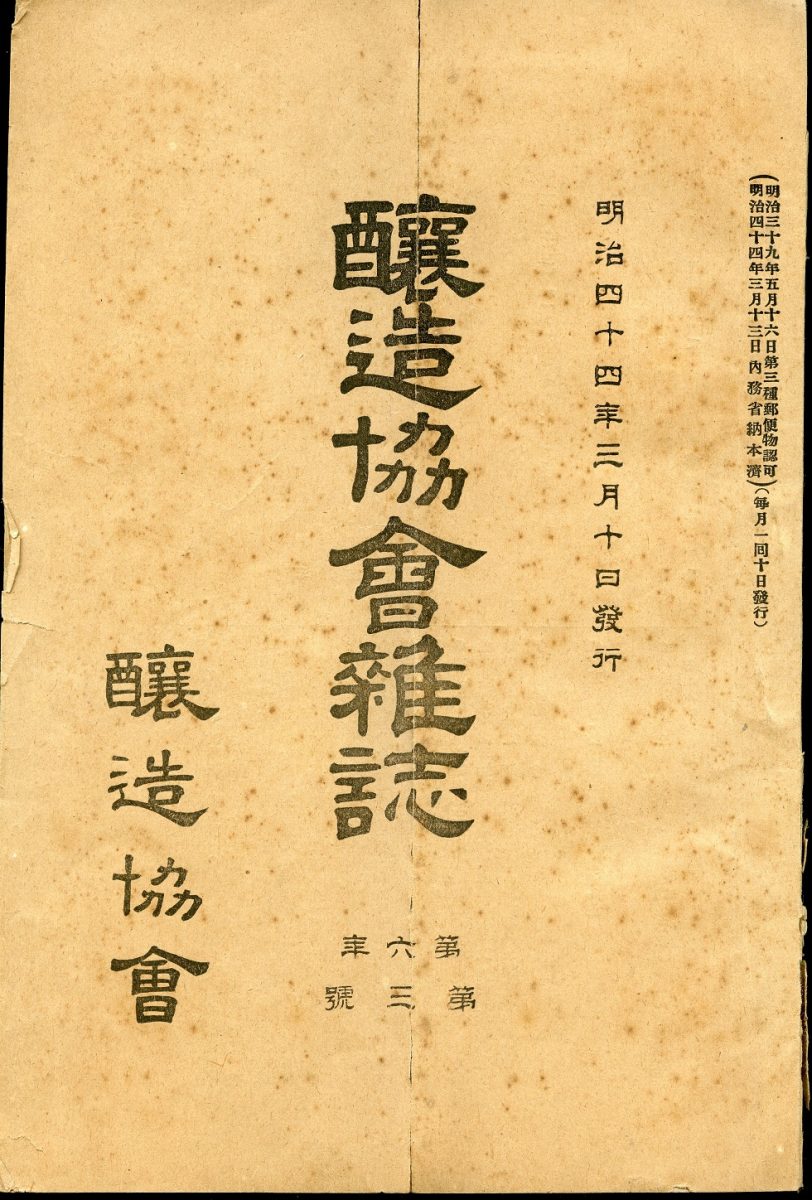 (明治三十九年五月十六日第三種郵便物認可)
(明治四十四年三月十三日內務省納本濟)(每月一回十日發行)
明治四十四年三月十日發行
釀造協會雜誌
第六年
第三號
釀造協會